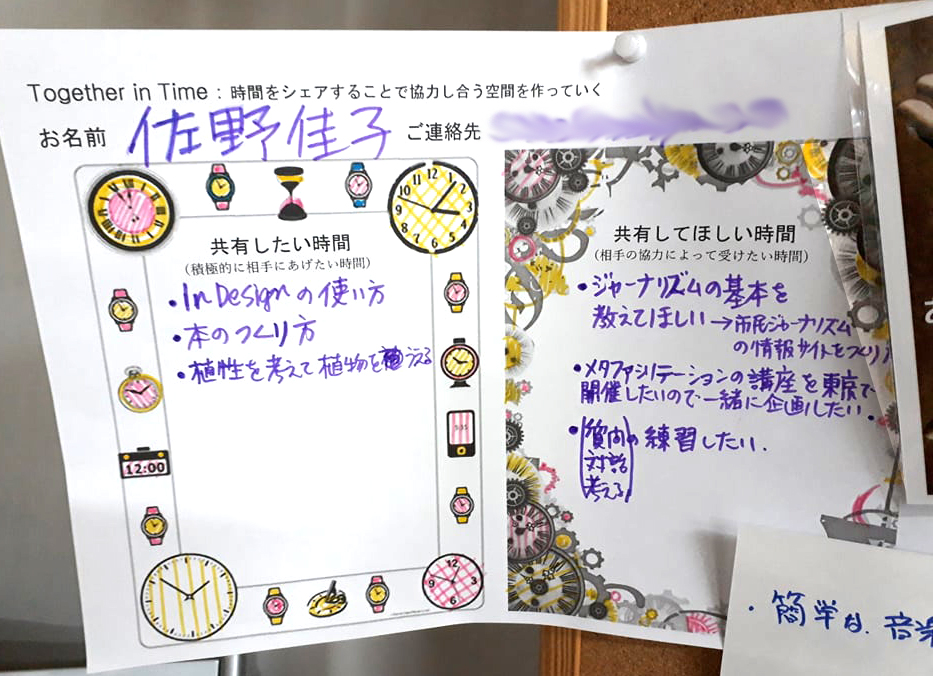 Together in Time : 時間をシェアすることで協力し合う空間を作っていく
お名前 佐野佳子 ご連絡先
共有したい時間
(積極的に相手にあげたい時間)
・InDesignの使い方
・本のつくり方
・植性を考えて植物を植うえる
12:00
共有してほしい時間
(相手の協力によって受けたい時間)
・ジャーナリズムの基本を
教えてほしい→市民ジャーナリズム
の情報サイトをつくり
・メタファシリテーションの講座を東京で
開催したいので一緒に企画したい.
・質問の練習したい.
対話
考える
・簡単な音楽